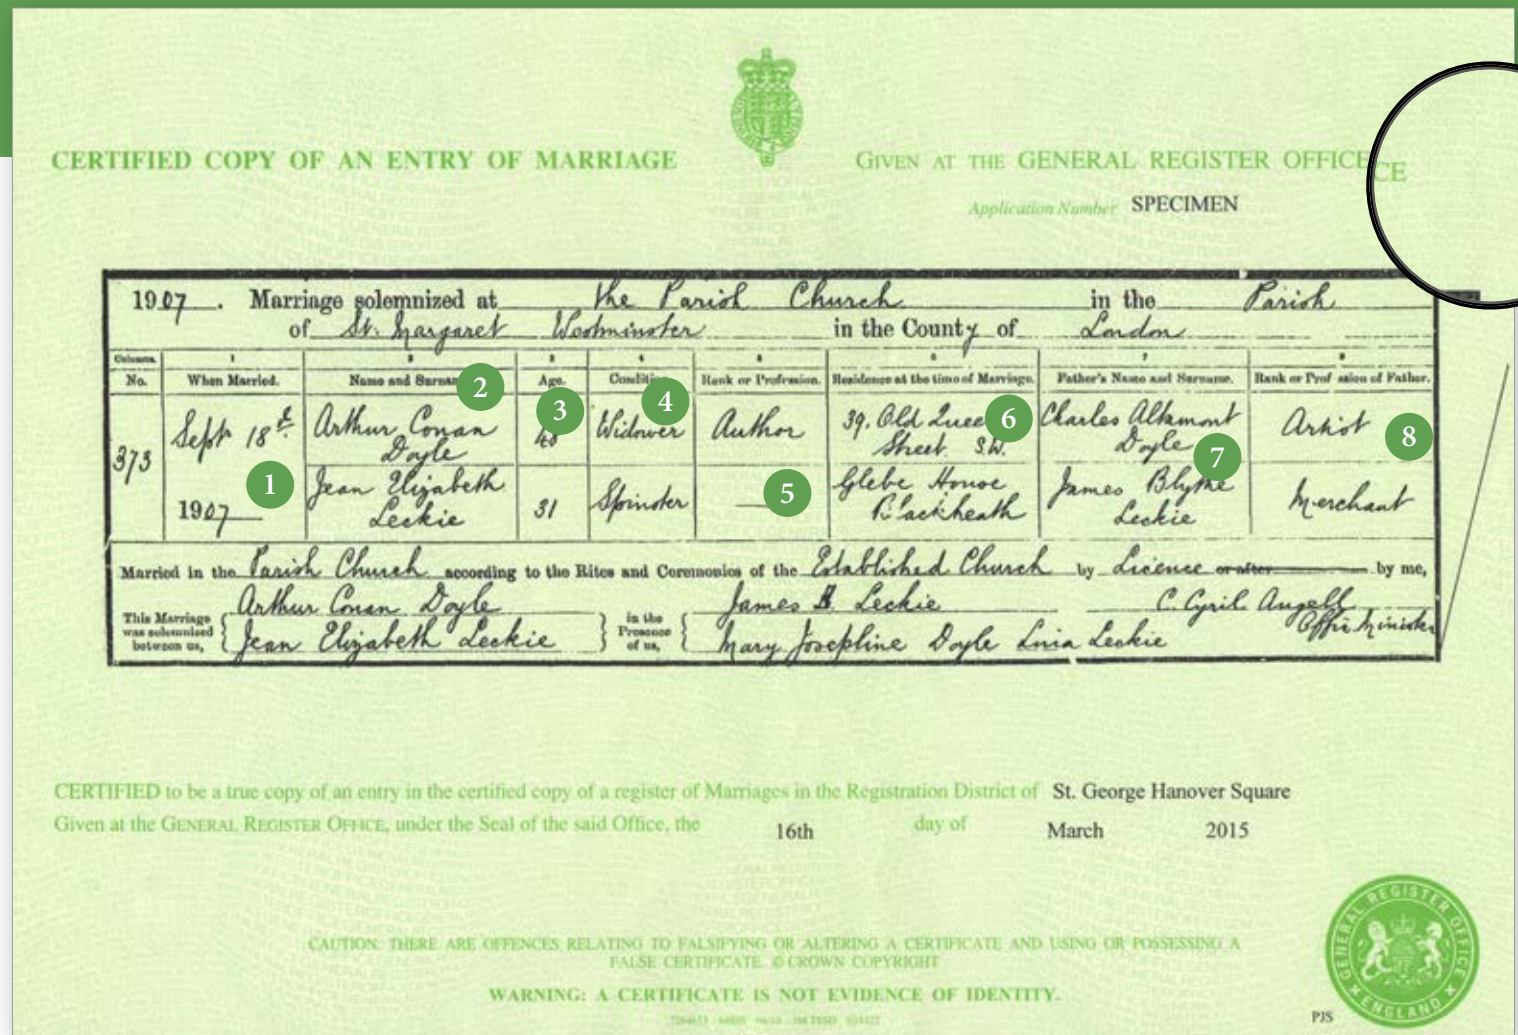 CERTIFIED COPY OF AN ENTRY OF MARRIAGE
GIVEN AT THE GENERAL REGISTER OFFICE
CE
Application Number SPECIMEN
1907. Marriage solemnized at the Parish Church in the Parish
of St. Margaret Westminster in the County of London
Columns. 1 2 3 4 5 6 7 8
No. When Married. Name and Surname 2 Age. Condition Rank or Profession. Residence at the time of Marriage. Father's Name and Surname. Rank or Profession of Father.
3 4 6 8
373 Sept 18th Arthur Conan Doyle 48 Widower Author 39. Old Queen Street S.W. Charles Altamont Doyle Artist
1 5 7
1907 Jean Elizabeth Leckie 31 Spinster — Glebe House Blackheath James Blythe Leckie Merchant
Married in the Parish Church according to the Rites and Ceremonies of the Established Church by Licence or after by me,
This Marriage was solemnized between us, Arthur Conan Doyle in the Presence of us, James B Leckie C. Cyril Angell
Jean Elizabeth Leckie Mary Josephine Doyle Leckie
CERTIFIED to be a true copy of an entry in the certified copy of a register of Marriages in the Registration District of St. George Hanover Square
Given at the GENERAL REGISTER OFFICE, under the Seal of the said Office, the 16th day of March 2015
CAUTION: THERE ARE OFFENCES RELATING TO FALSIFYING OR ALTERING A CERTIFICATE AND USING OR POSSESSING A
FALSE CERTIFICATE. © CROWN COPYRIGHT
WARNING: A CERTIFICATE IS NOT EVIDENCE OF IDENTITY.
GENERAL REGISTER OFFICE
ENGLAND
PJS